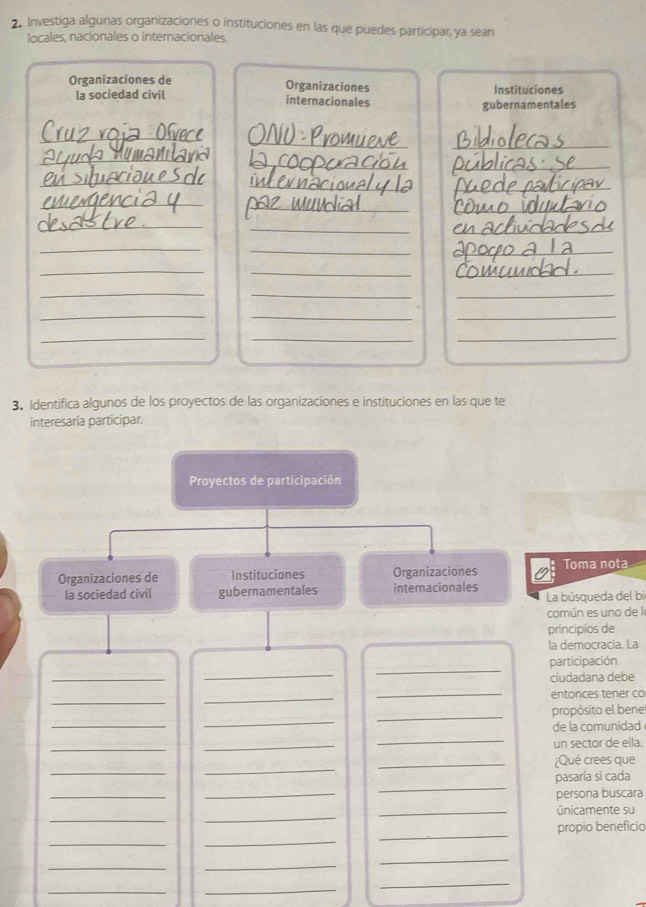 2. Investiga algunas organizaciones o instituciones en las que puedes participar, ya sean
locales, nacionales o internacionales.
Organizaciones de
la sociedad civil
Cruz roja: Ofrece
ayuda Humanitaria
en situaciones de
emergencia y
desastre.
Organizaciones
internacionales
ONU: Promueve
la cooperación
internacional y la
paz mundial
Instituciones
gubernamentales
Bibliotecas
públicas: se
puede participar
como voluntario
en actividades de
apoyo a la
comunidad.
3. Identifica algunos de los proyectos de las organizaciones e instituciones en las que te
interesaría participar.
Proyectos de participación
Organizaciones de
la sociedad civil
Instituciones
gubernamentales
Organizaciones
internacionales
Toma nota
La búsqueda del bi
común es uno de l
principios de
la democracia. La
participación
ciudadana debe
entonces tener co
propósito el bene
de la comunidad
un sector de ella.
¿Qué crees que
pasaría si cada
persona buscara
únicamente su
propio beneficio